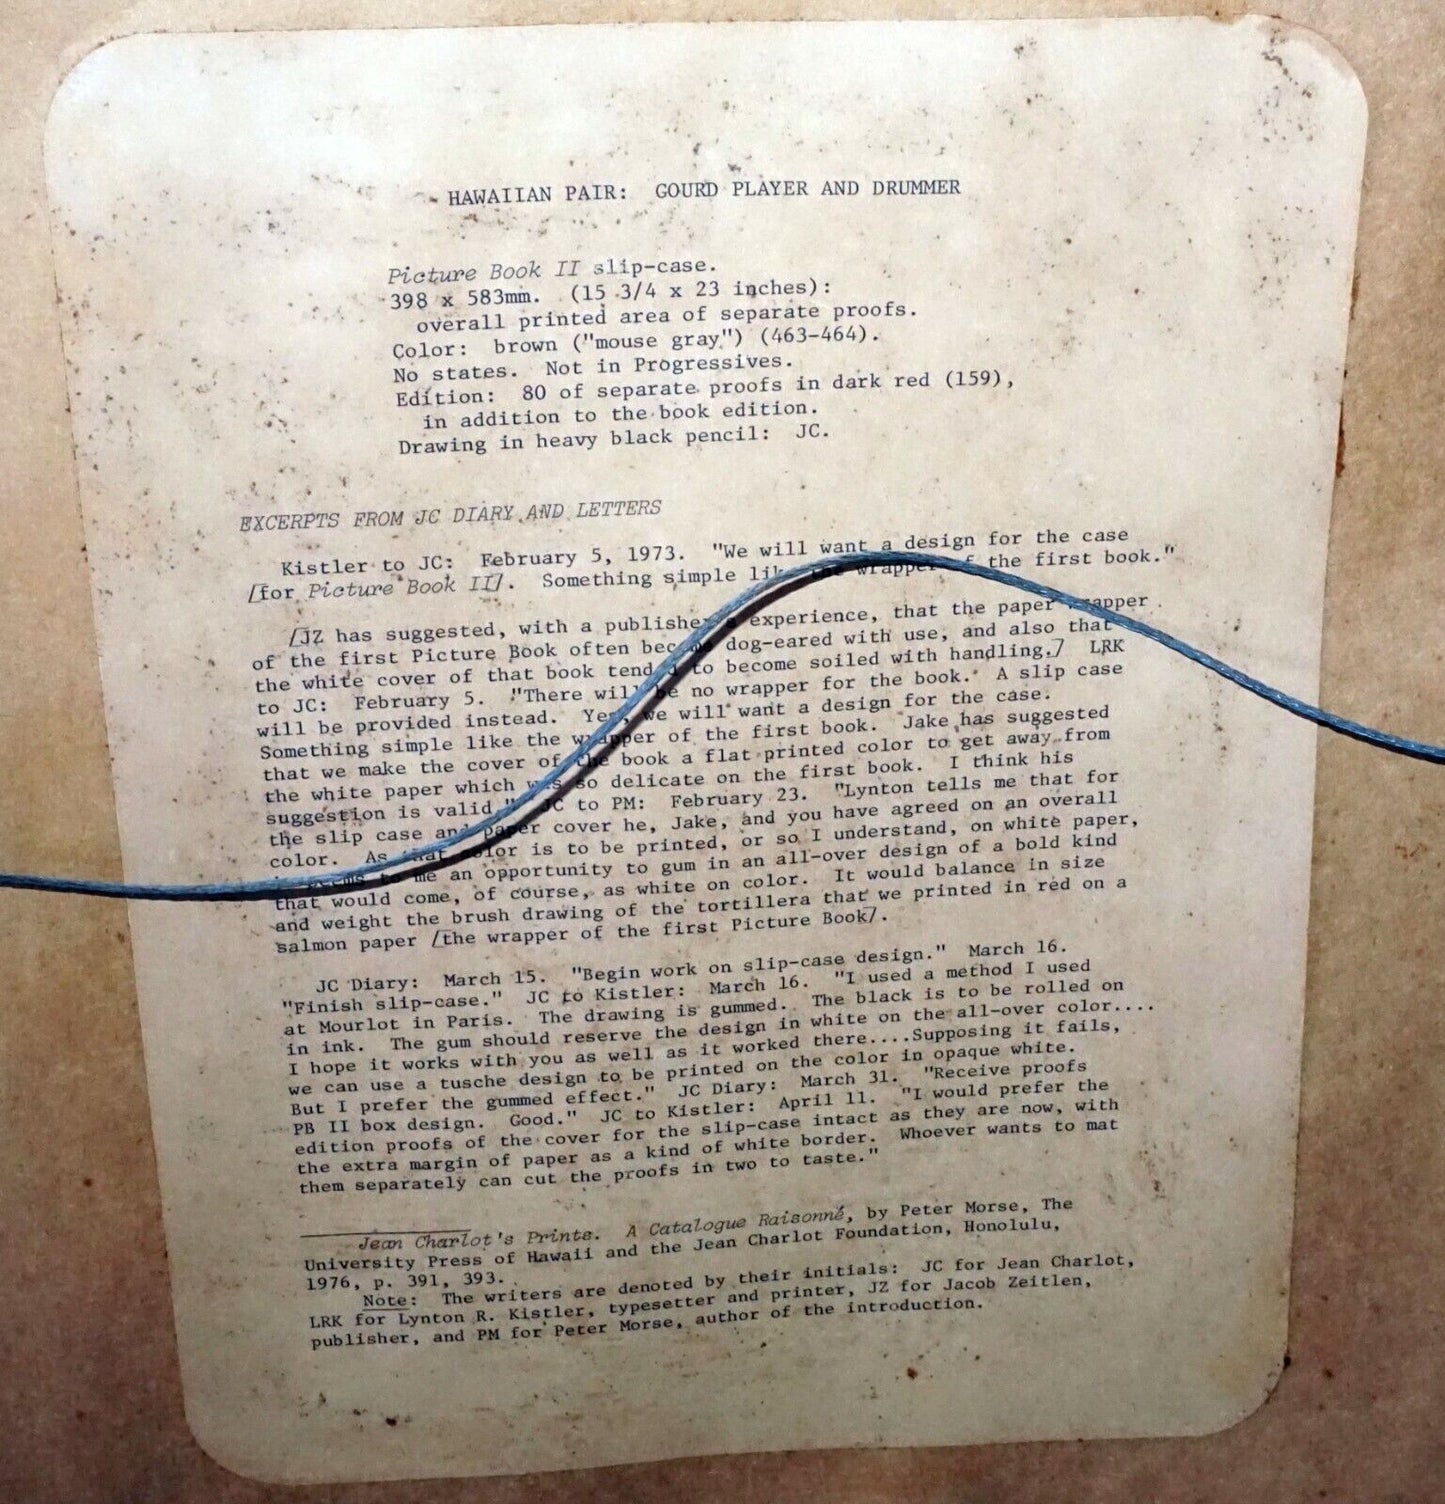 HAWAIIAN PAIR: GOURD PLAYER AND DRUMMER
Picture Book II slip-case.
398 x 583mm. (15 3/4 x 23 inches):
overall printed area of separate proofs.
Color: brown ("mouse gray") (463-464).
No states. Not in Progressives.
Edition: 80 of separate proofs in dark red (159),
in addition to the book edition.
Drawing in heavy black pencil: JC.
EXCERPTS FROM JC DIARY AND LETTERS
Kistler to JC: February 5, 1973. "We will want a design for the case
[for Picture Book II]. Something simple like the wrapper of the first book."
[JZ has suggested, with a publisher's experience, that the paper wrapper
of the first Picture Book often become dog-eared with use, and also that
the white cover of that book tended to become soiled with handling.] LRK
to JC: February 5. "There will be no wrapper for the book. A slip case
will be provided instead. Yes, we will want a design for the case.
Something simple like the wrapper of the first book. Jake has suggested
that we make the cover of the book a flat printed color to get away from
the white paper which was so delicate on the first book. I think his
suggestion is valid." JC to PM: February 23. "Lynton tells me that for
the slip case and paper cover he, Jake, and you have agreed on an overall
color. As that color is to be printed, or so I understand, on white paper,
me an opportunity to gum in an all-over design of a bold kind
that would come, of course, as white on color. It would balance in size
and weight the brush drawing of the tortillera that we printed in red on a
salmon paper [the wrapper of the first Picture Book].
JC Diary: March 15. "Begin work on slip-case design." March 16.
"Finish slip-case." JC to Kistler: March 16. "I used a method I used
at Mourlot in Paris. The drawing is gummed. The black is to be rolled on
in ink. The gum should reserve the design in white on the all-over color....
I hope it works with you as well as it worked there....Supposing it fails,
we can use a tusche design to be printed on the color in opaque white.
But I prefer the gummed effect." JC Diary: March 31. "Receive proofs
PB II box design. Good." JC to Kistler: April 11. "I would prefer the
edition proofs of the cover for the slip-case intact as they are now, with
the extra margin of paper as a kind of white border. Whoever wants to mat
them separately can cut the proofs in two to taste."
Jean Charlot's Prints. A Catalogue Raisonné, by Peter Morse, The
University Press of Hawaii and the Jean Charlot Foundation, Honolulu,
1976, p. 391, 393.
Note: The writers are denoted by their initials: JC for Jean Charlot,
LRK for Lynton R. Kistler, typesetter and printer, JZ for Jacob Zeitlen,
publisher, and PM for Peter Morse, author of the introduction.